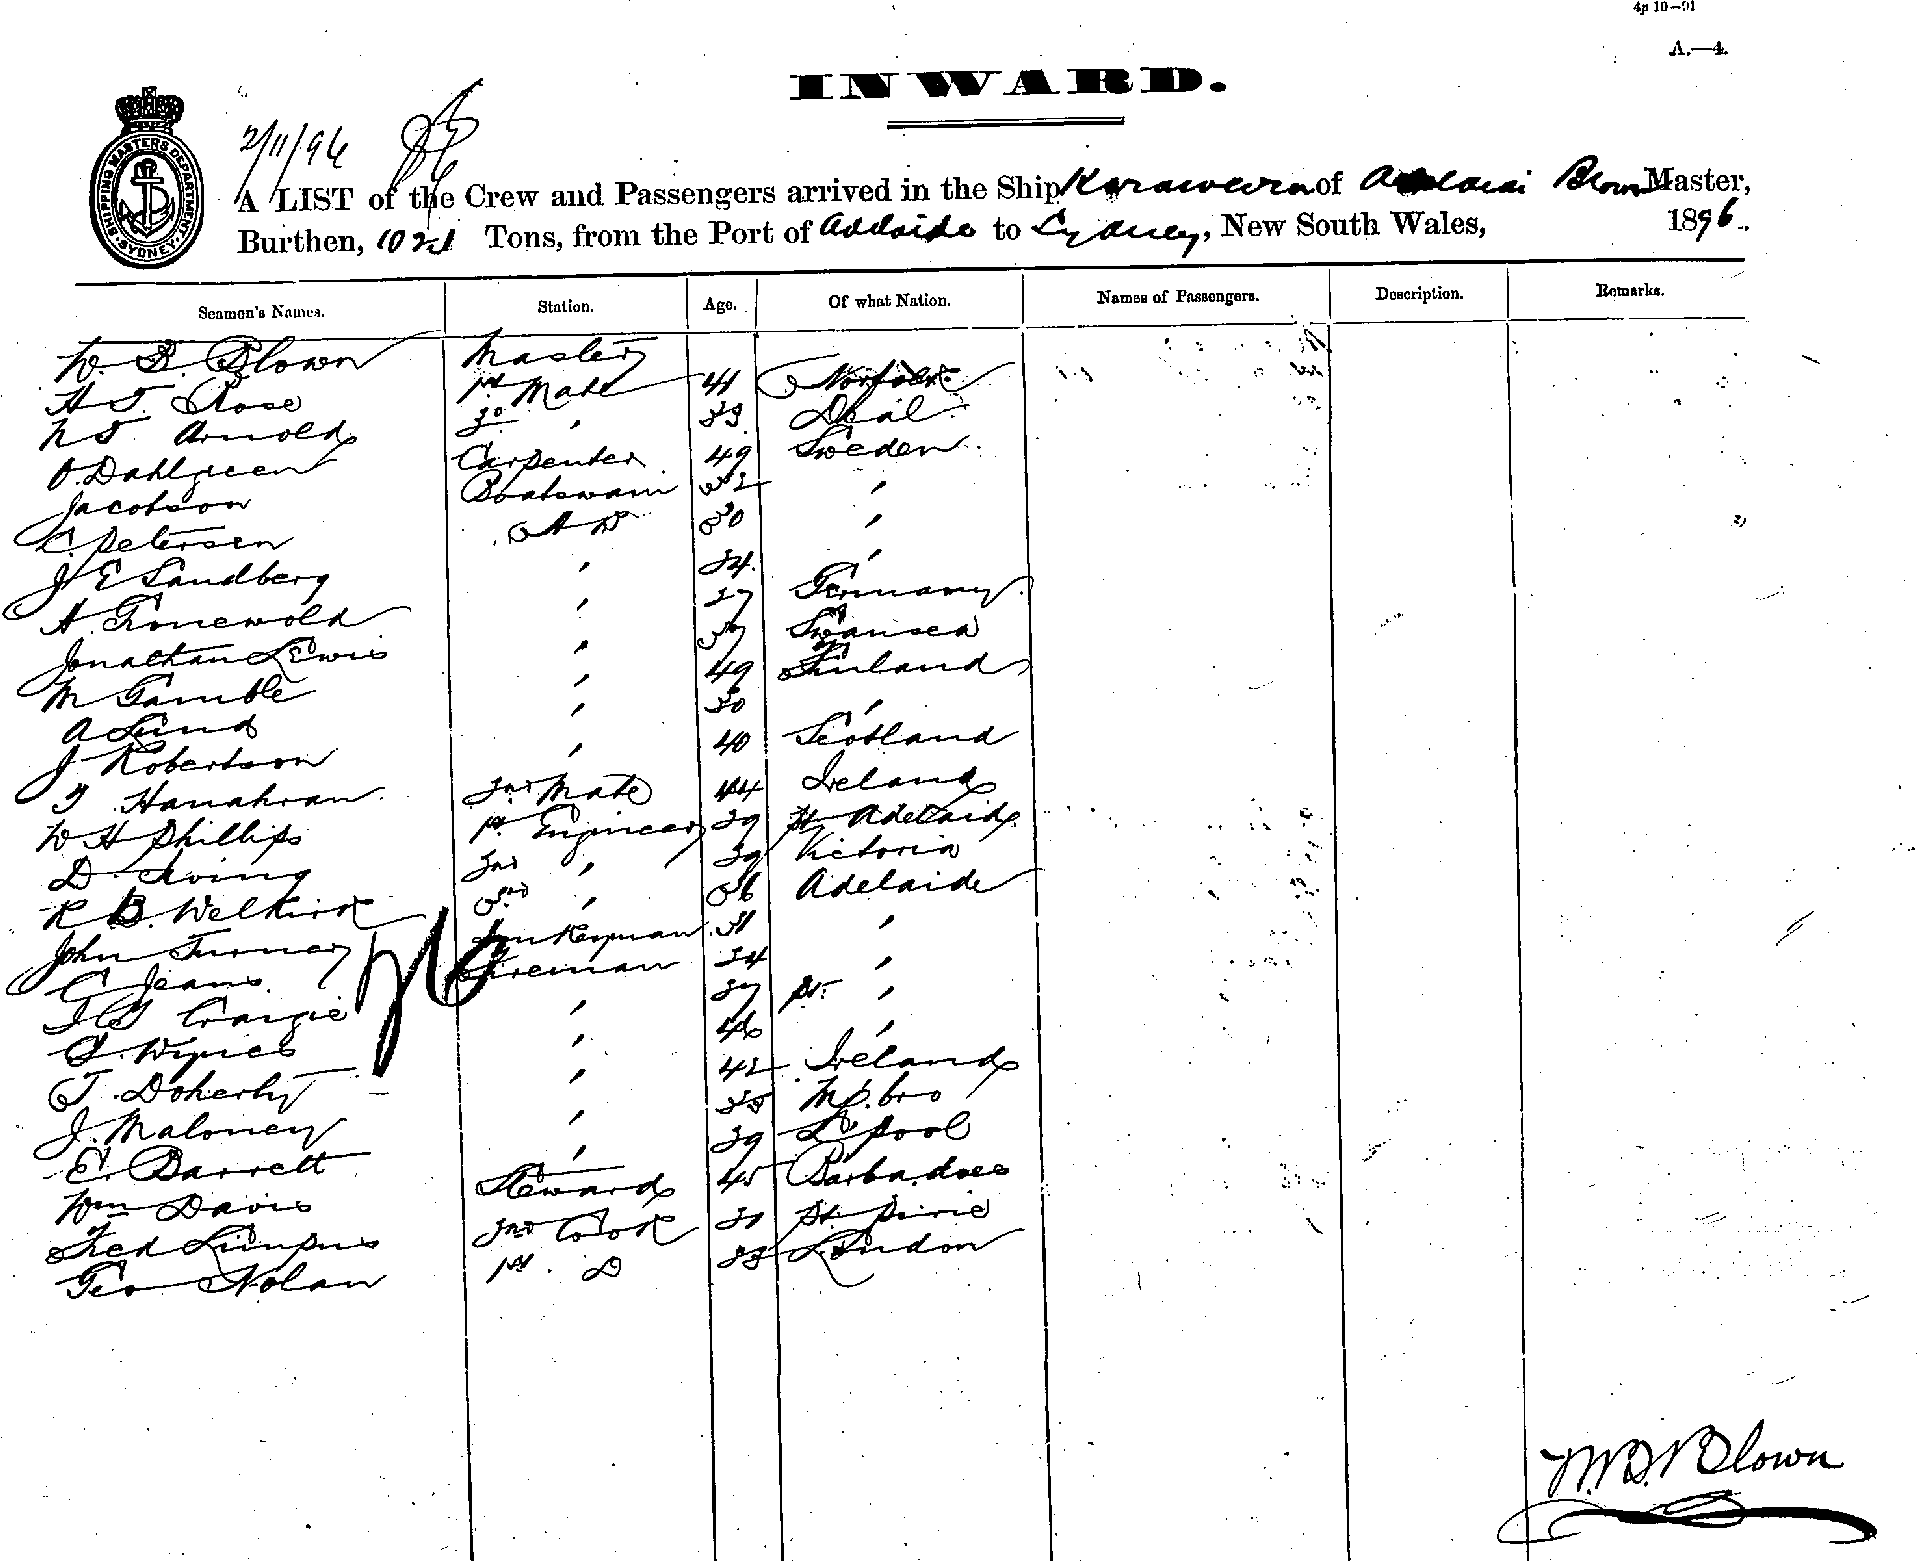 4p 10—91
A.—4.
INWARD.
2/11/96
SHIPPING MASTERS DEPARTMENT SYDNEY
A LIST of the Crew and Passengers arrived in the Ship of Blown Master,
Burthen, Tons, from the Port of Adelaide to Sydney, New South Wales, 1896.
Seamen's Names. Station. Age. Of what Nation. Names of Passengers. Description. Remarks.
W. B. Blown Master
H T. Rose 1st Mate 41 Norfolk
Arnold 2d " Deal
O. Dahlgreen Carpenter 49 Sweden
Jacobson Boatswain "
C. Petersen A B 30 "
J E Sandberg " 34 "
H. Gronewold " 27 Germany
Jonathan Lewis " Swansea
M Gamble " 49 Finland
A Lund " 30 "
J Robertson " 40 Scotland
Hanahran 2nd Mate 44 Ireland
W H Phillips 1st Engineer 39 Pt Adelaide
D Irving 2nd " 39 Victoria
R B. 3rd " 36 Adelaide
John Turner 31 "
C Jeans Fireman 34 "
Craigie " 37 Pt. "
" 46 "
T. Doherty " 42 Ireland
J. Maloney " 35 M.bro
E. Barrett " 39 L'pool
Wm Davis Steward 45 Barbadoes
Fred 2nd Cook Pt. Pirie
Geo Nolan 1st D London
W. B. Blown